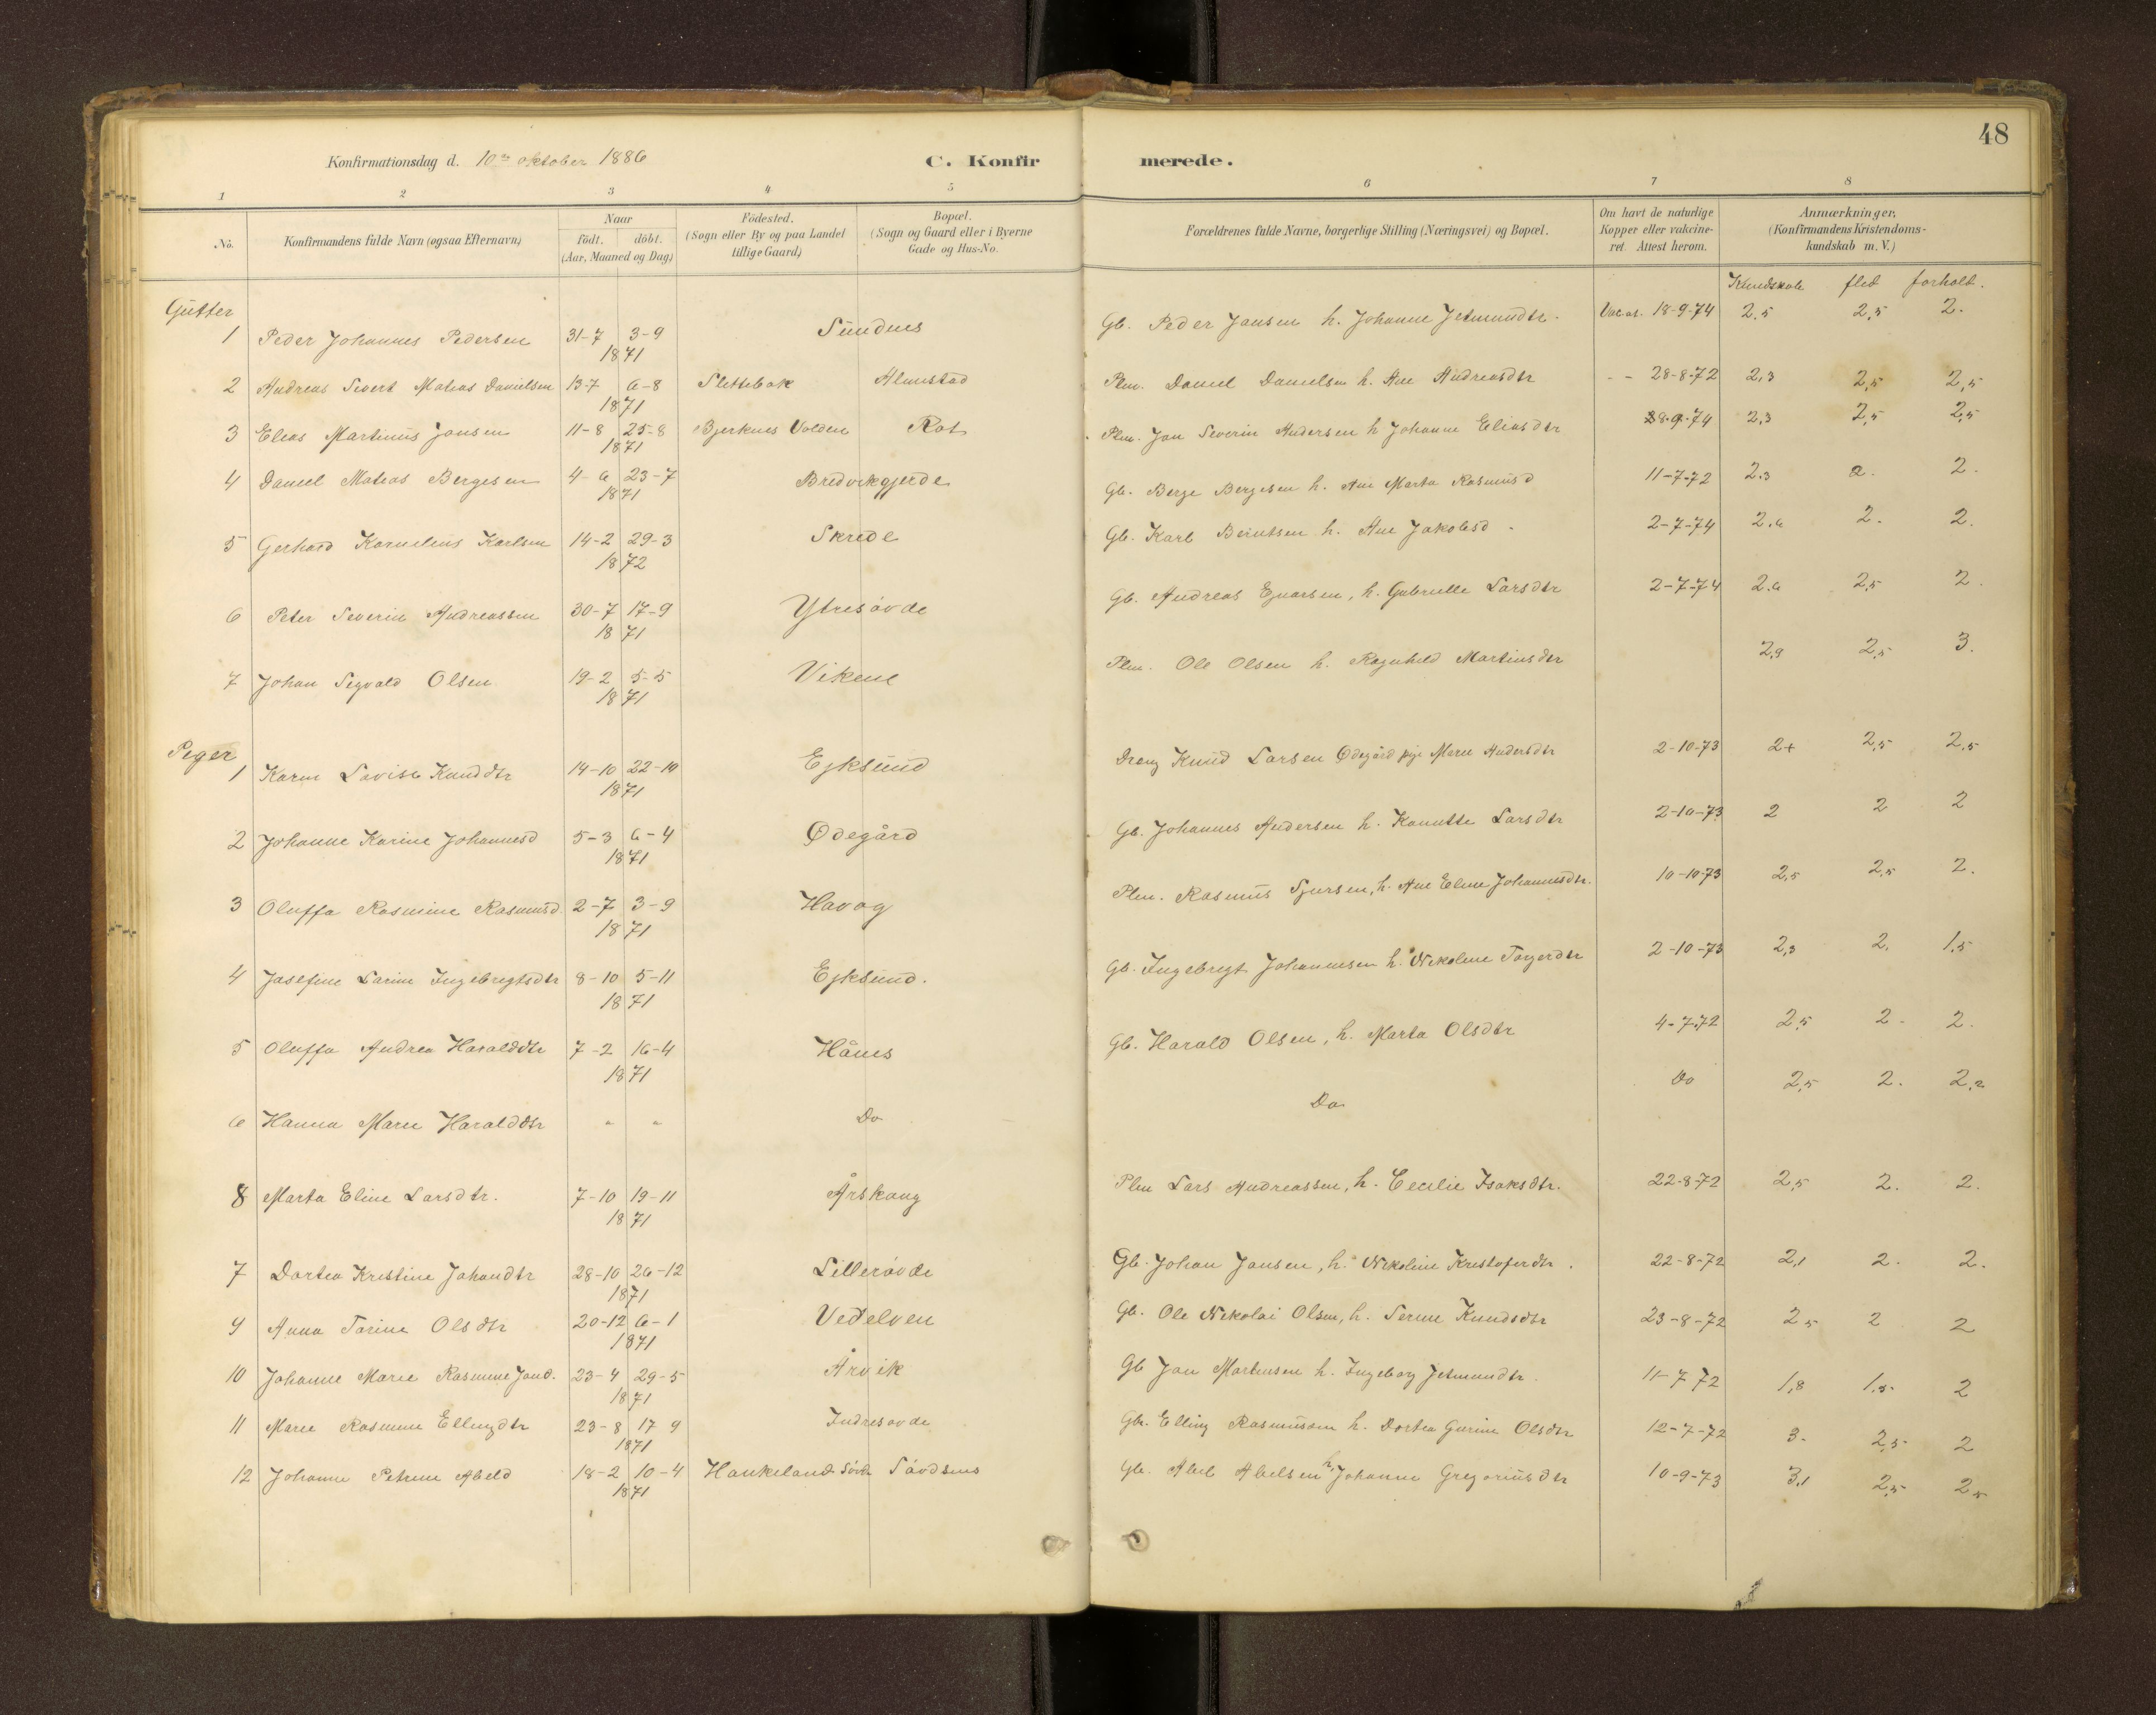 48
Konfirmationsdag d. 10de oktober 1886 C. Konfirmerede.
1 2 3 4 5 6 7 8
No. Konfirmandens fulde Navn (ogsaa Efternavn) Naar födt. döbt. (Aar, Maaned og Dag) Födested. (Sogn eller By og paa Landet tillige Gaard) Bopæl. (Sogn og Gaard eller i Byerne Gade og Hus-No. Forældrenes fulde Navne, borgerlige Stilling (Næringsvei) og Bopæl. Om havt de naturlige Kopper eller vakcineret. Attest herom. Anmærkninger, (Konfirmandens Kristendomskundskab m. V.)
Kundskab flid forhold.
Gutter
1 Peder Johannes Pedersen 31-7 3-9 1871 Sundnes Gb. Peder Jansen h. Johanne Jetmundtr. Vac. at. 18-9-74 2.5 2,5 2.
2 Andreas Sivert Matias Danielsen 13-7 6-8 1871 Slettebak Almestad Plm. Daniel Danielsen h. Ane Andreasdtr - - 28-8-72 2,3 2,5 2,5
3 Elias Martinus Jansen 11-8 25-8 1871 Bjerknes Volden Rot Plm. Jan Severin Andersen h Johanne Eliasdtr 28-9-74 2,3 2,5 2,5
4 Daniel Matias Bergesen 4-6 23-7 1871 Bredvikgjerde Gb. Berge Bergesen h. Ane Marta Rasmusd 11-7-72 2.3 2. 2.
5 Gerhard Kornelius Karlsen 14-2 29-3 1872 Skrede Gb. Karl Berntsen h. Ane Jakobsd. 2-7-74 2.6 2. 2.
6 Peter Severin Andreassen 30-7 17-9 1871 Ytresövde Gb. Andreas Ejnarsen, h. Gabrielle Larsdtr 2-7-74 2.6 2,5 2.
7 Johan Sigvald Olsen 19-2 5-5 1871 Vikene Plm. Ole Olsen h. Ragnhild Martinsdtr 2,9 2,5 3.
Piger
1 Karen Lovise Knuddtr 14-10 22-10 1871 Ejksund Dreng Knud Larsen Ødegård pige Marie Andersdtr 2-10-73 2+ 2,5 2,5
2 Johanne Karine Johannesd 5-3 6-4 1871 Ødegård Gb. Johannes Andersen h. Kanutte Larsdtr 2-10-73 2 2 2
3 Oluffa Rasmine Rasmusd. 2-7 3-9 1871 Havåg Plm. Rasmus Sjursen, h. Ane Eline Johannesdtr. 10-10-73 2,5 2,5 2.
4 Josefine Larine Ingebregtsdtr 8-10 5-11 1871 Ejksund. Gb. Ingebregt Johannesen h. Nikoline Torgerdtr 2-10-73 2,3 2. 1.5
5 Oluffa Andrea Haralddtr 7-2 16-4 1871 Hånes Gb. Harald Olsen, h. Marta Olsdtr 4-7-72 2,5 2. 2.
6 Hanna Marie Haralddtr " " Do Do Do 2,5 2. 2,2
8 Marta Eline Larsdtr. 7-10 19-11 1871 Årskaug Plm Lars Andreassen, h. Cecilie Isaksdtr. 22-8-72 2,5 2. 2.
7 Dortea Kristine Johandtr 28-10 26-12 1871 Lillesövde Gb. Johan Jansen, h. Nikoline Kristoferdtr. 22-8-72 2,1 2. 2.
9 Anna Torine Olsdtr 20-12 6-1 1871 Vedelven Gb. Ole Nikolai Olsen, h. Serine Knudsdtr 23-8-72 2 5 2 2
10 Johanne Marie Rasmine Jand. 23-4 29-5 1871 Årvik Gb Jan Martinsen h. Ingeborg Jetmundtr. 11-7 72 1,8 1.5 2
11 Marie Rasmine Ellingdtr 23-8 17 9 1871 Indresövde Gb. Elling Rasmussen h. Dortea Gurine Olsdtr 12-7-72 3- 2,5 2
12 Johanne Petrine Abeld 18-2 10-4 1871 Haukeland Sövde Sövdsnes Gb. Abel Abelsen h. Johanne Gregoriusdtr 10-9-73 3,1 2,5 2,5